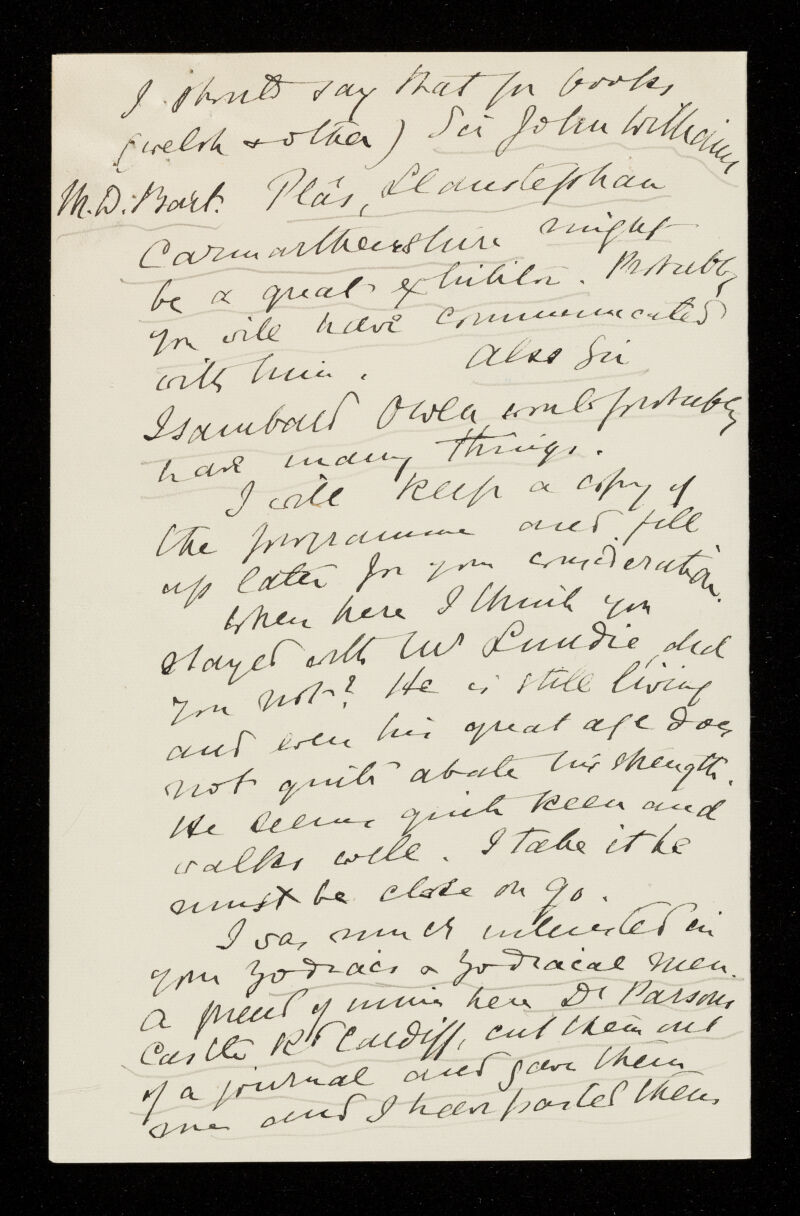 I should say that for books
(welsh & other) Sir John Williams
M.D. Bart. Plâs, Llanstephan
Carmarthenshire might
be a great exhibitor. Probably
you will have communicated
with him. Also Sir
Isambard Owen would probably
have many things.
I will keep a copy of
the programme and fill
up later for your consideration.
When here I think you
stayed with Mr Lundie, did
you not? He is still living
and even his great age does
not quite abate his strength.
He seems quite keen and
walks well. I take it he
must be close on 90.
I was much interested in
your Zodiacs & Zodiacal Men.
A friend of mine here Dr Parsons
Castle Rd Cardiff, cut them out
of a journal and gave them
me and I have pasted them